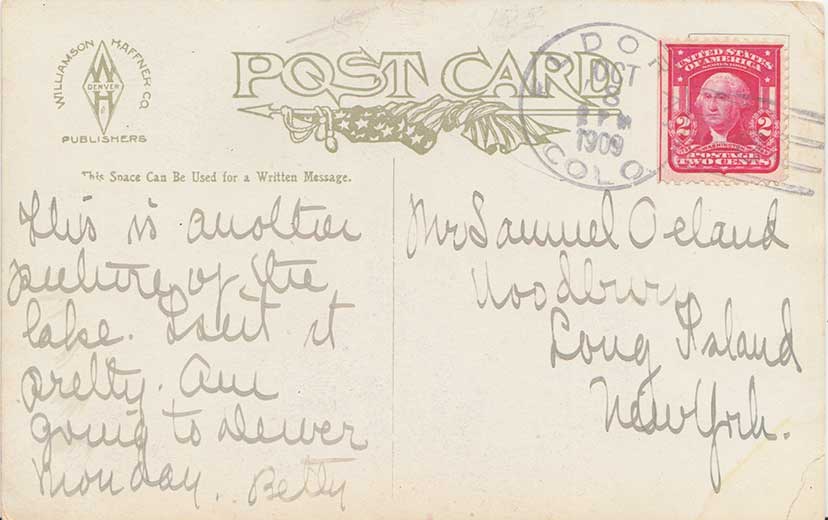 WILLIAMSON HAFFNER CO
W
DENVER
H
PUBLISHERS
POST CARD
This Space Can Be Used for a Written Message.
DO
OCT
8
PM
1909
COLO
UNITED STATES
OF AMERICA
2 WASHINGTON 2
POSTAGE
TWO CENTS
This is another
picture of the
lake. Isn't it
pretty. Am
going to Denver
Monday. Betty
Mr Samuel Oeland
Woodbury
Long Island
New York.